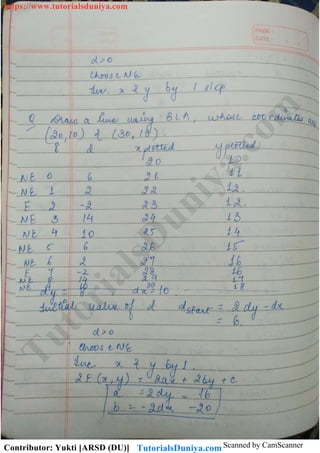 https://www.tutorialsduniya.com
PAGE:
DATE: / /
d>0
Choose NE
Inc. x & y by 1 step
Q Draw a line using BLA, whose coordinates are
(20,10) & (30,18).
k d xplotted yplotted
20 10
NE 0 6 21 11
NE 1 2 22 12.
E 2 -2 23 12.
NE 3 14 24 13
NE 4 10 25 14
NE 5 6 26 15
NE 6 2 27 16
E 7 -2 28 16
NE 8 14 29 17
NE 9 10 30 18
dy = 8 dx = 10.
Initial value of d dstart = 2dy - dx
= 6.
d>0
Choose NE
Inc. x & y by 1.
2F(x,y) = 2ax + 2by + c
a = 2dy = 16
b = -2dx -20
TutorialsDuniya.com
Contributor: Yukti [ARSD (DU)] TutorialsDuniya.com Scanned by CamScanner